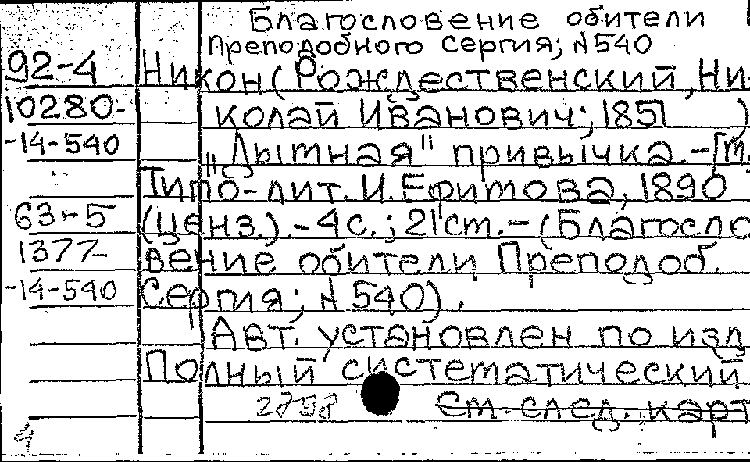 Благословение обители
Преподобного Сергия; N540
92-4 Никон (Рождественский, Ни-
10280- колай Иванович; 1851 )
-14-540 "Дытная" привычка. - [М.
Типо-лит. И. Ефимова, 1890
63-5 (ценз.). - 4 с.; 21 см. - (Благосло
1377- вение обители Преподоб.
-14-540 Сергия; N 540).
Авт. установлен по изд
Полный систематический
2858 См. след. карт
4